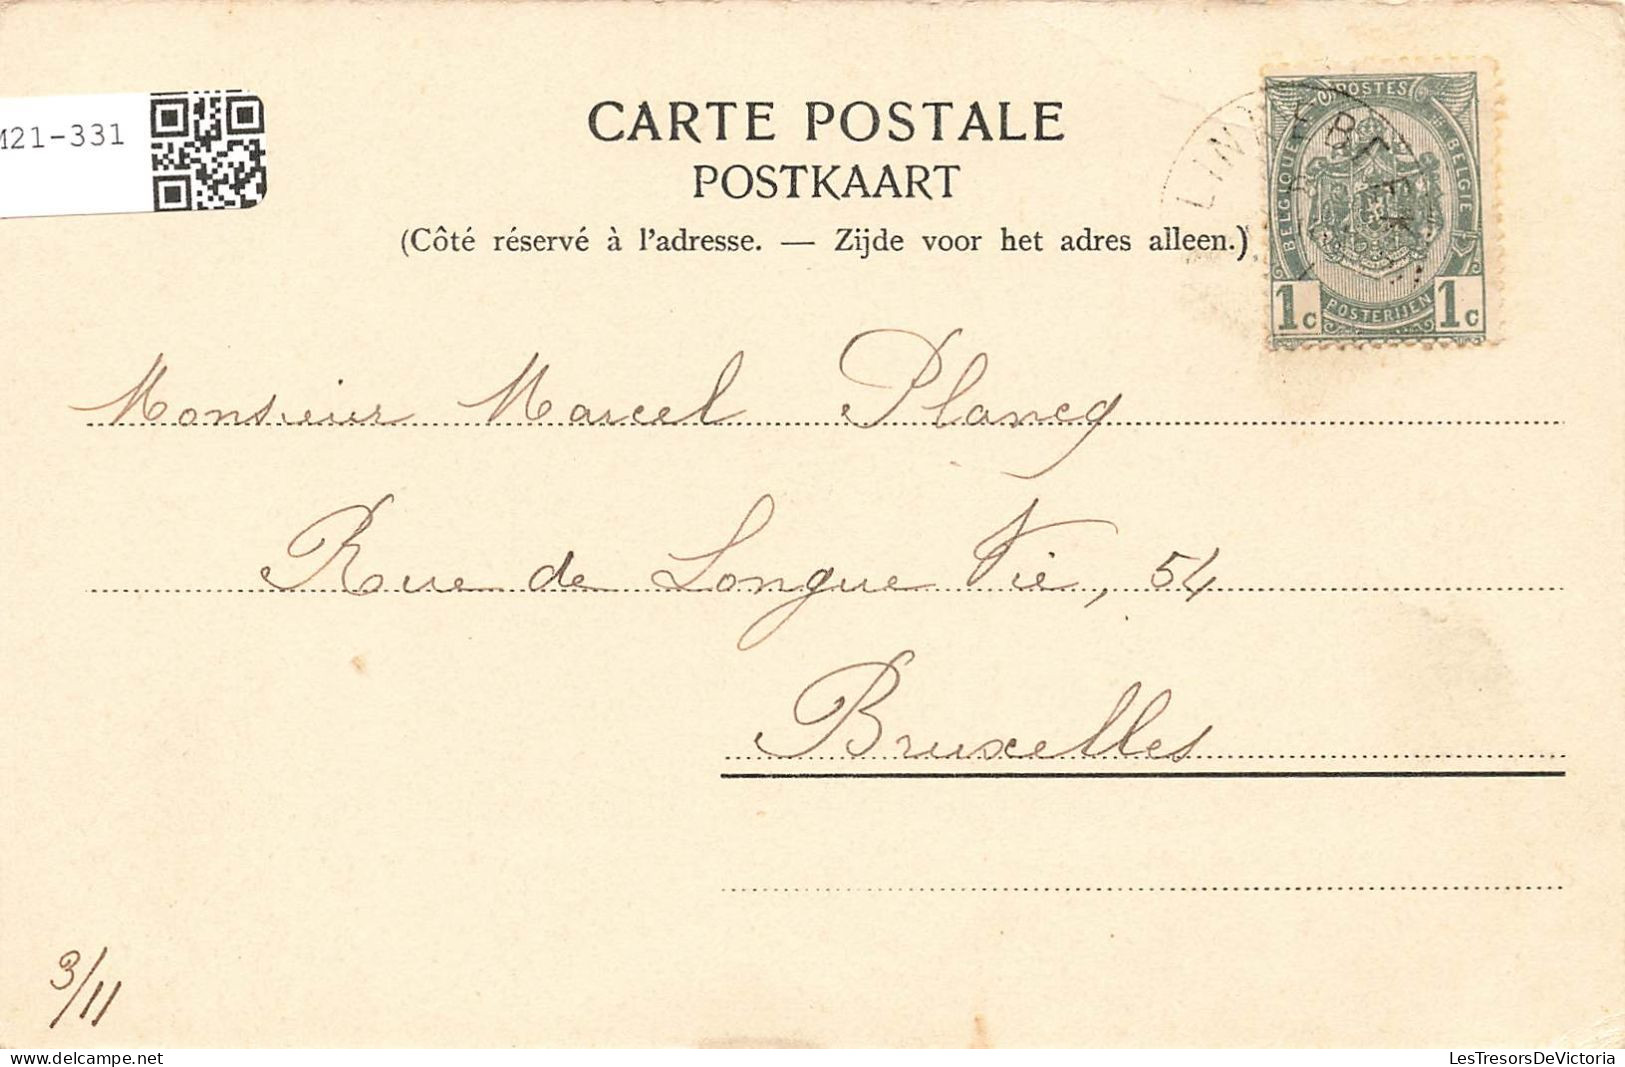 M21-331
CARTE POSTALE
POSTKAART
(Côté réservé à l'adresse. — Zijde voor het adres alleen.)
POSTES
BELGIQUE
BELGIE
POSTERIJEN
1c 1c
LINKEBEEK
Monsieur Marcel Plancq
Rue de Longue Vie, 54
Bruxelles
3/11
delcampe.net
LesTresorsDeVictoria